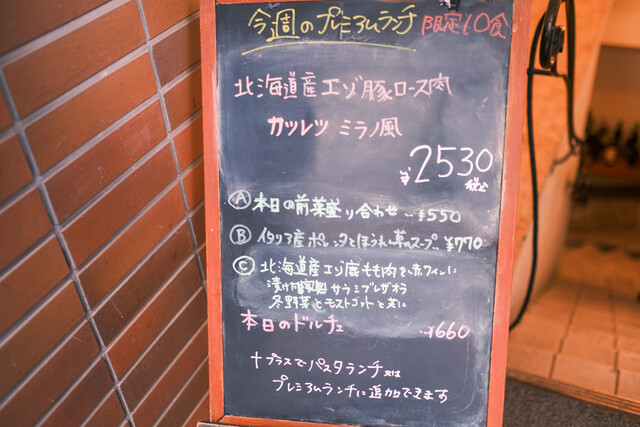 今週のプレミアムランチ 限定10食
北海道産エゾ豚ロース肉
カツレツ ミラノ風
¥2530 税込
Ⓐ 本日の前菜盛り合わせ ‥¥550
Ⓑ イタリア産ポレンタとほうれん草のスープ‥¥770
Ⓒ 北海道産エゾ鹿もも肉を赤ワインに
漬けた自家製 サラミブレザオラ
冬野菜とモストコットと共に
本日のドルチェ ‥¥660
+プラスでパスタランチ又は
プレミアムランチに追加できます